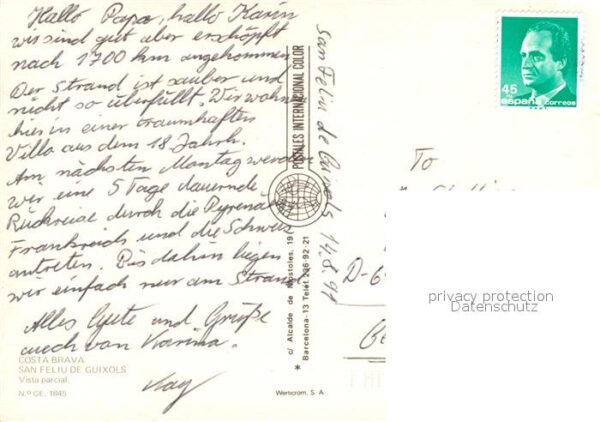 Hallo Papa, hallo Karin
wir sind gut aber erschöpft
nach 1700 km angekommen.
Der Strand ist sauber und
nicht so überfüllt. Wir wohnen
hier in einer traumhaften
Villa aus dem 18 Jahrh.
Am nächsten Montag werden
wir eine 5 Tage dauernde
Rückreise durch die Pyrenäen
Frankreichs und die Schweiz
antreten. Bis dahin liegen
wir einfach nur am Strand
Alles Gute und Grüße
auch von Karina.
Kay
COSTA BRAVA
SAN FELIU DE GUIXOLS
Vista parcial.
N.º GE. 1845
POSTALES INTERNACIONAL COLOR
c/ Alcalde de Mostoles, 19
* Barcelona-13 Telef. 236-92-21
Wertcrom, S. A.
San Feliu de Guixols 14.8.91
45
PTA
españa correos
To
D-6
privacy protection
Datenschutz